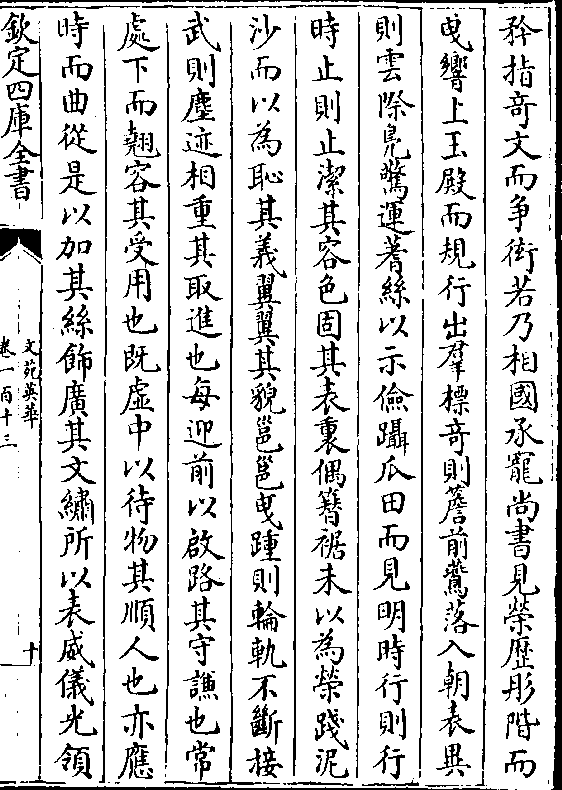 矜指奇文而爭衒若乃相國承寵尚書見榮歴彤階而
曳響上玉殿而規行出羣標奇則簷前鷰落入朝表異
則雲際鳬驚運蓍絲以示儉躡瓜田而見明時行則行
時止則止潔其容色固其表裏偶簪裾未以為榮踐泥
沙而以為恥其義翼翼其貌邕邕曳踵則輪軌不斷接
武則塵迹相重其取進也每迎前以啟路其守謙也常
處下而翹容其受用也既虚中以待物其順人也亦應
時而曲從是以加其絲飾廣其文繡所以表威儀光領
欽定四庫全書
文苑英華
卷一百十三
十